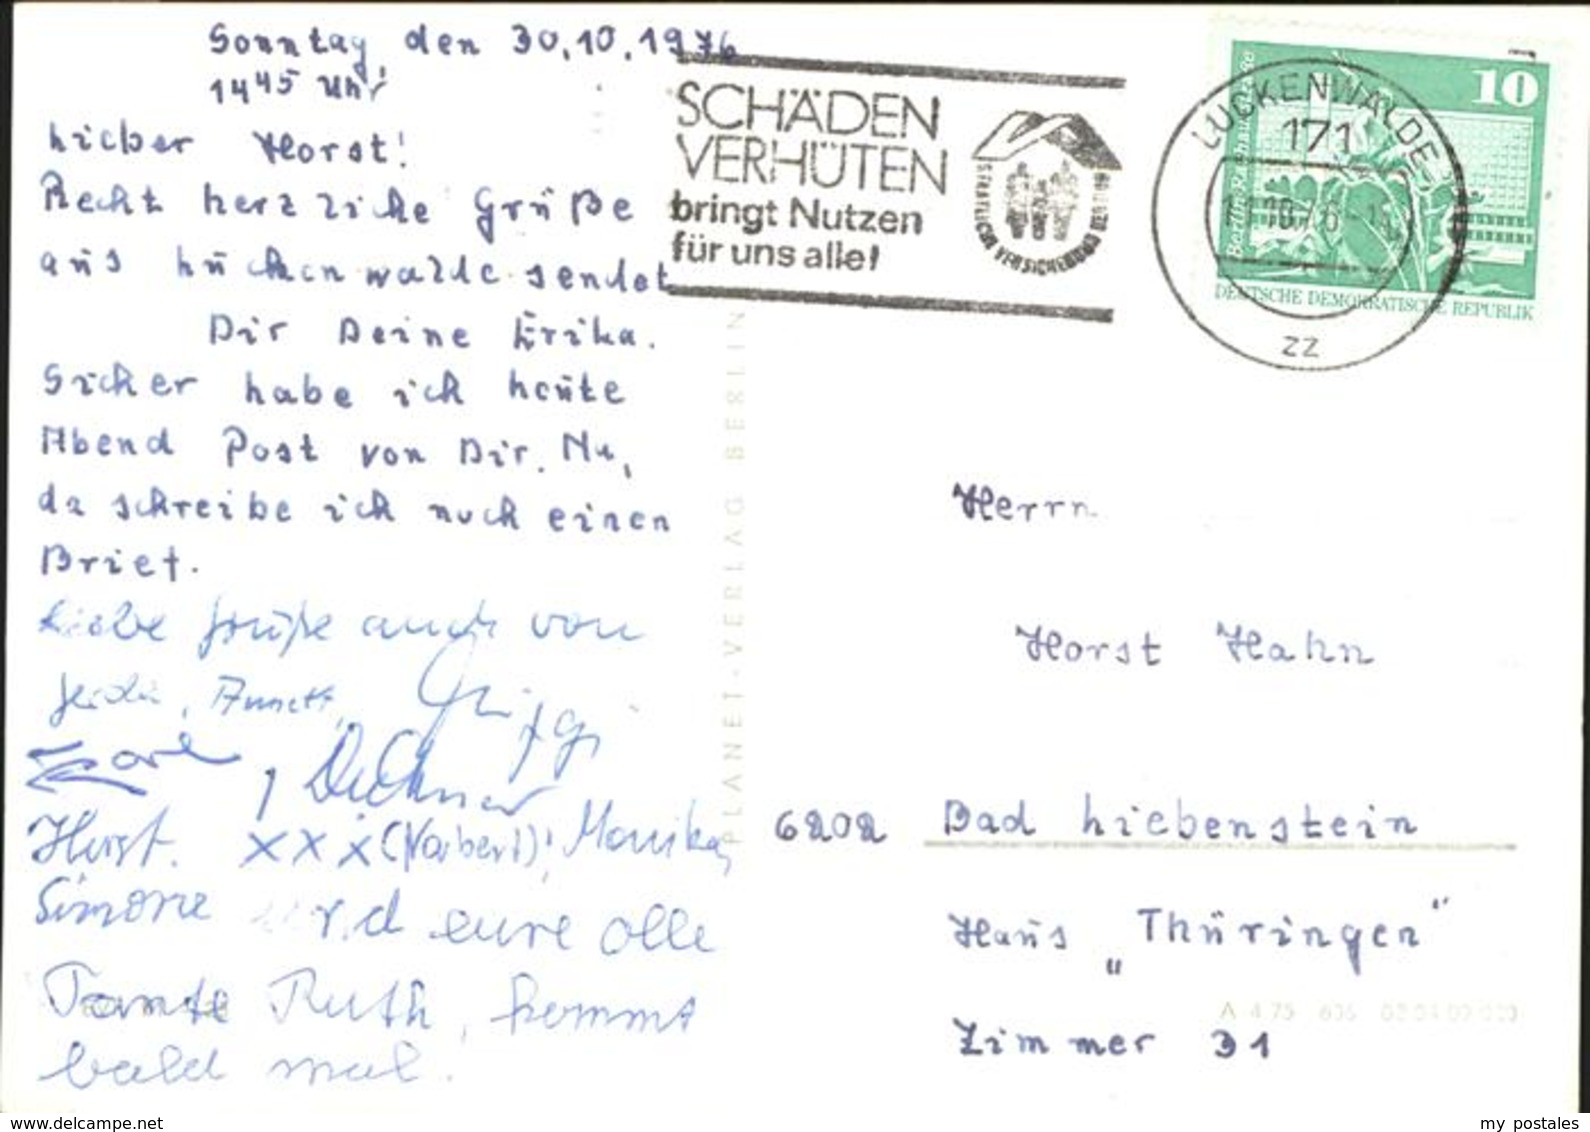 Sonntag, den 30.10.1976
14⁴⁵ Uhr
Lieber Horst!
Recht herzliche Grüße
aus Luckenwalde sendet
Dir Deine Erika.
Sicher habe ich heute
Abend Post von Dir. Na,
da schreibe ich noch einen
Brief.
Liebe Grüße auch von
Horst. xxx (Norbert), Monika,
Simone und eure olle
Tante Ruth, kommt
bald mal.
SCHÄDEN
VERHÜTEN
bringt Nutzen
für uns alle!
STAATLICHE VERSICHERUNG DER DDR
LUCKENWALDE
171
zz
10
Berlin, Rathausstraße
DEUTSCHE DEMOKRATISCHE REPUBLIK
PLANET-VERLAG BERLIN
Herrn
Horst Hahn
6202 Bad Liebenstein
Haus „Thüringen"
Zimmer 31
www.delcampe.net
my_postales